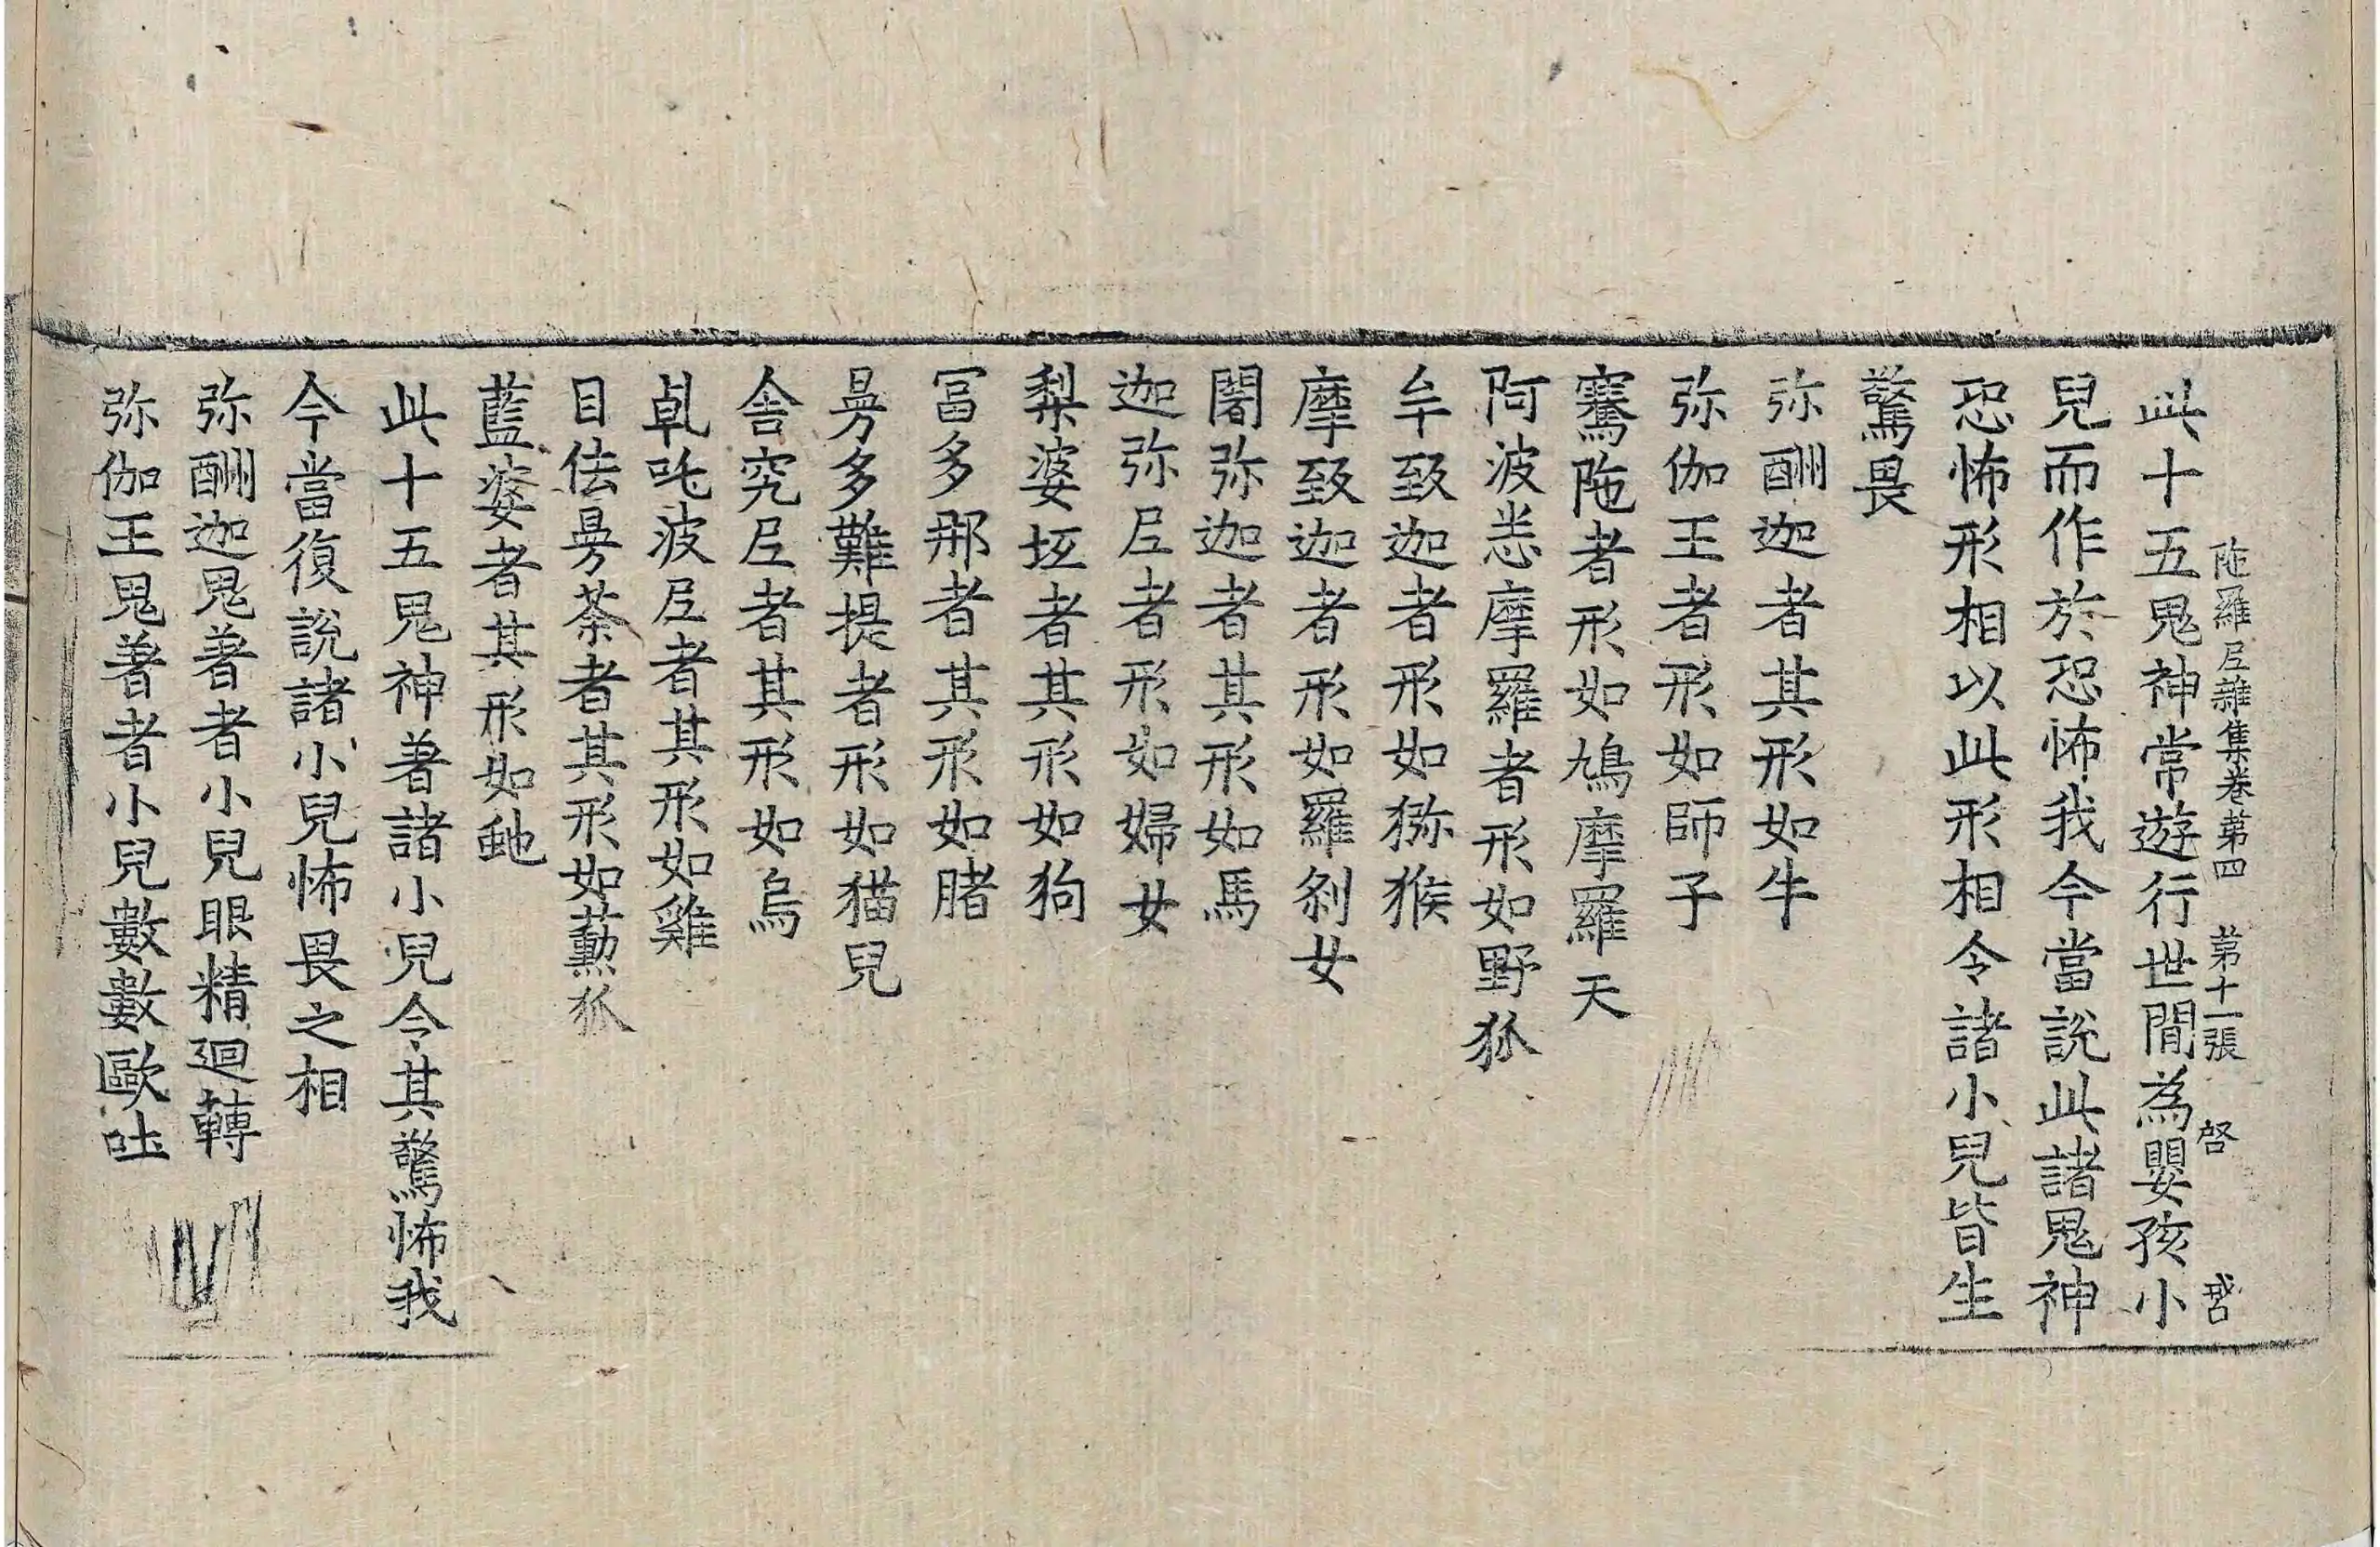 陁羅𡰱雜集卷第四 第十一張 啓 𢧵
此十五鬼神常遊行世間為嬰孩小
兒而作於恐怖我今當說此諸鬼神
恐怖形相以此形相令諸小兒皆生
驚畏
弥酬迦者其形如牛
弥伽王者形如師子
騫陁者形如鳩摩羅天
阿波悉摩羅者形如野狐
牟致迦者形如獼猴
摩致迦者形如羅剎女
闍弥迦者其形如馬
迦弥𡰱者形如婦女
梨婆坻者其形如狗
冨多那者其形如賭
曼多難提者形如猫兒
舍究𡰱者其形如烏
乹吒波𡰱者其形如雞
目佉曼荼者其形如薫狐
藍婆者其形如虵
此十五鬼神著諸小兒令其驚怖我
今當復說諸小兒怖畏之相
弥酬迦鬼著者小兒眼精迴轉
弥伽王鬼著者小兒數數歐吐